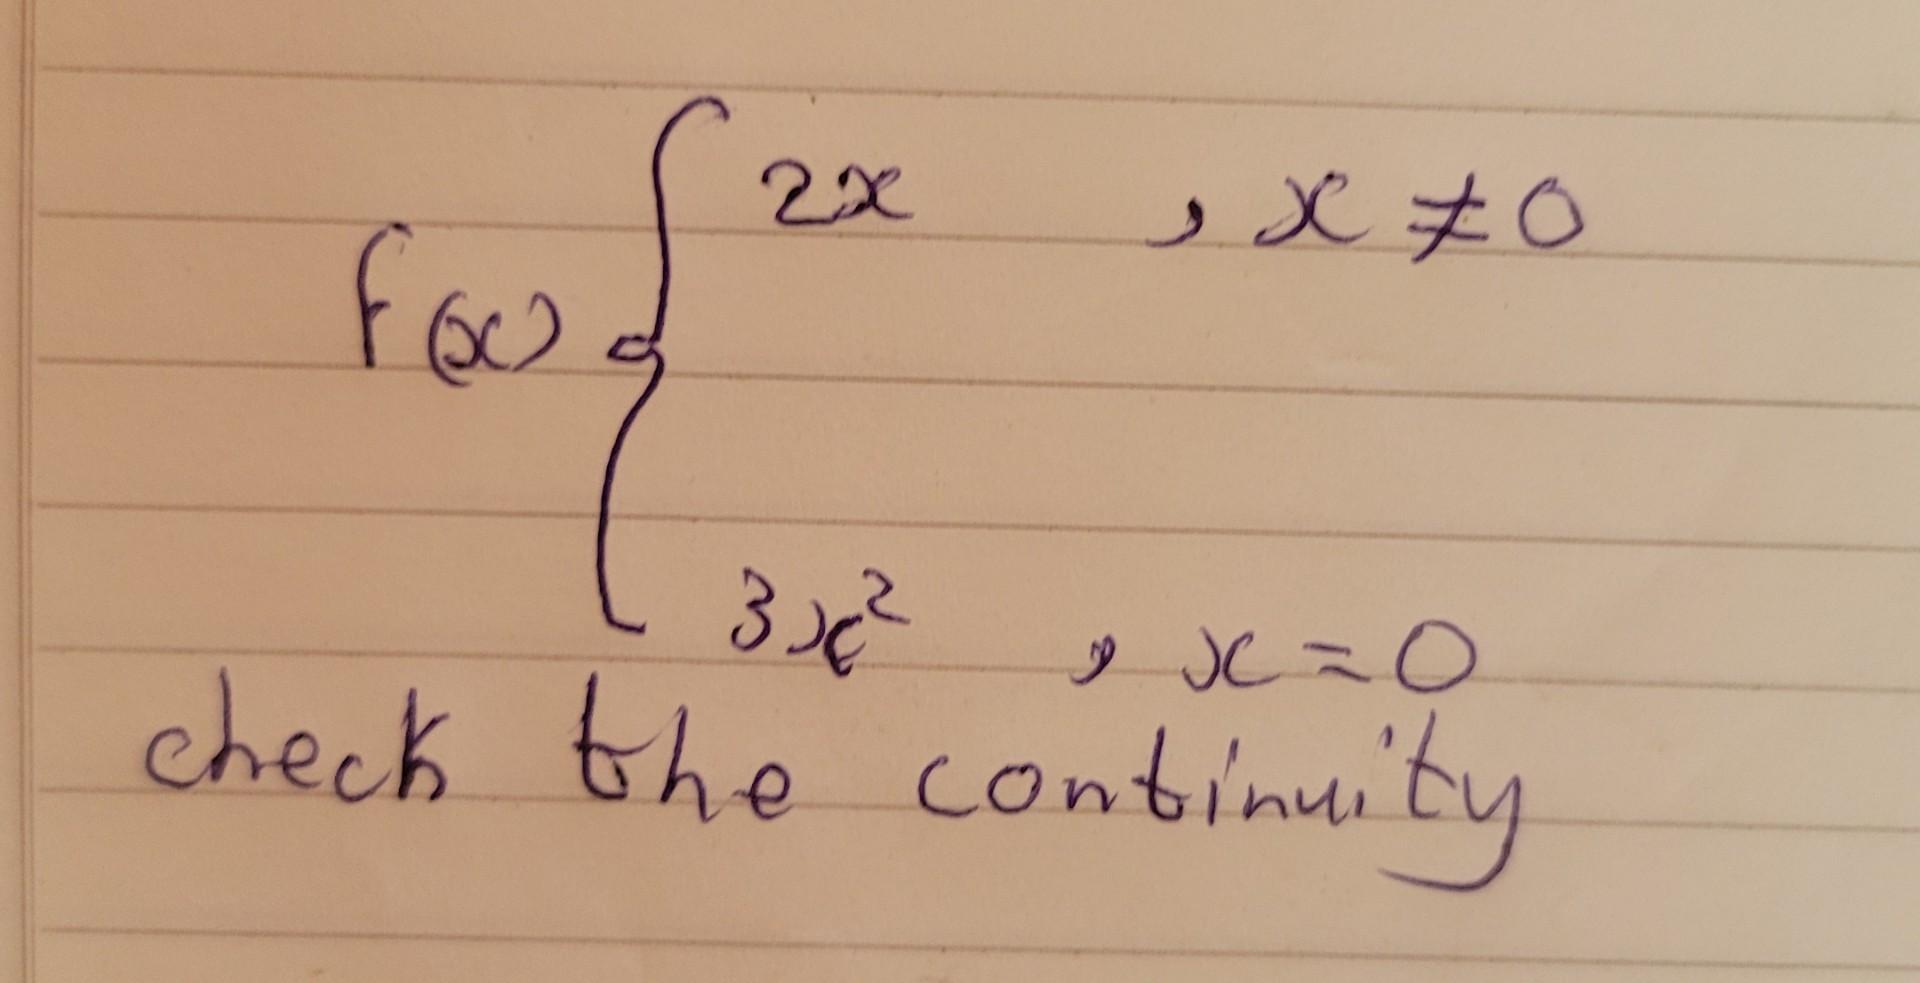 2x , x ≠ 0
f(x)
3x² , x = 0
check the continuity